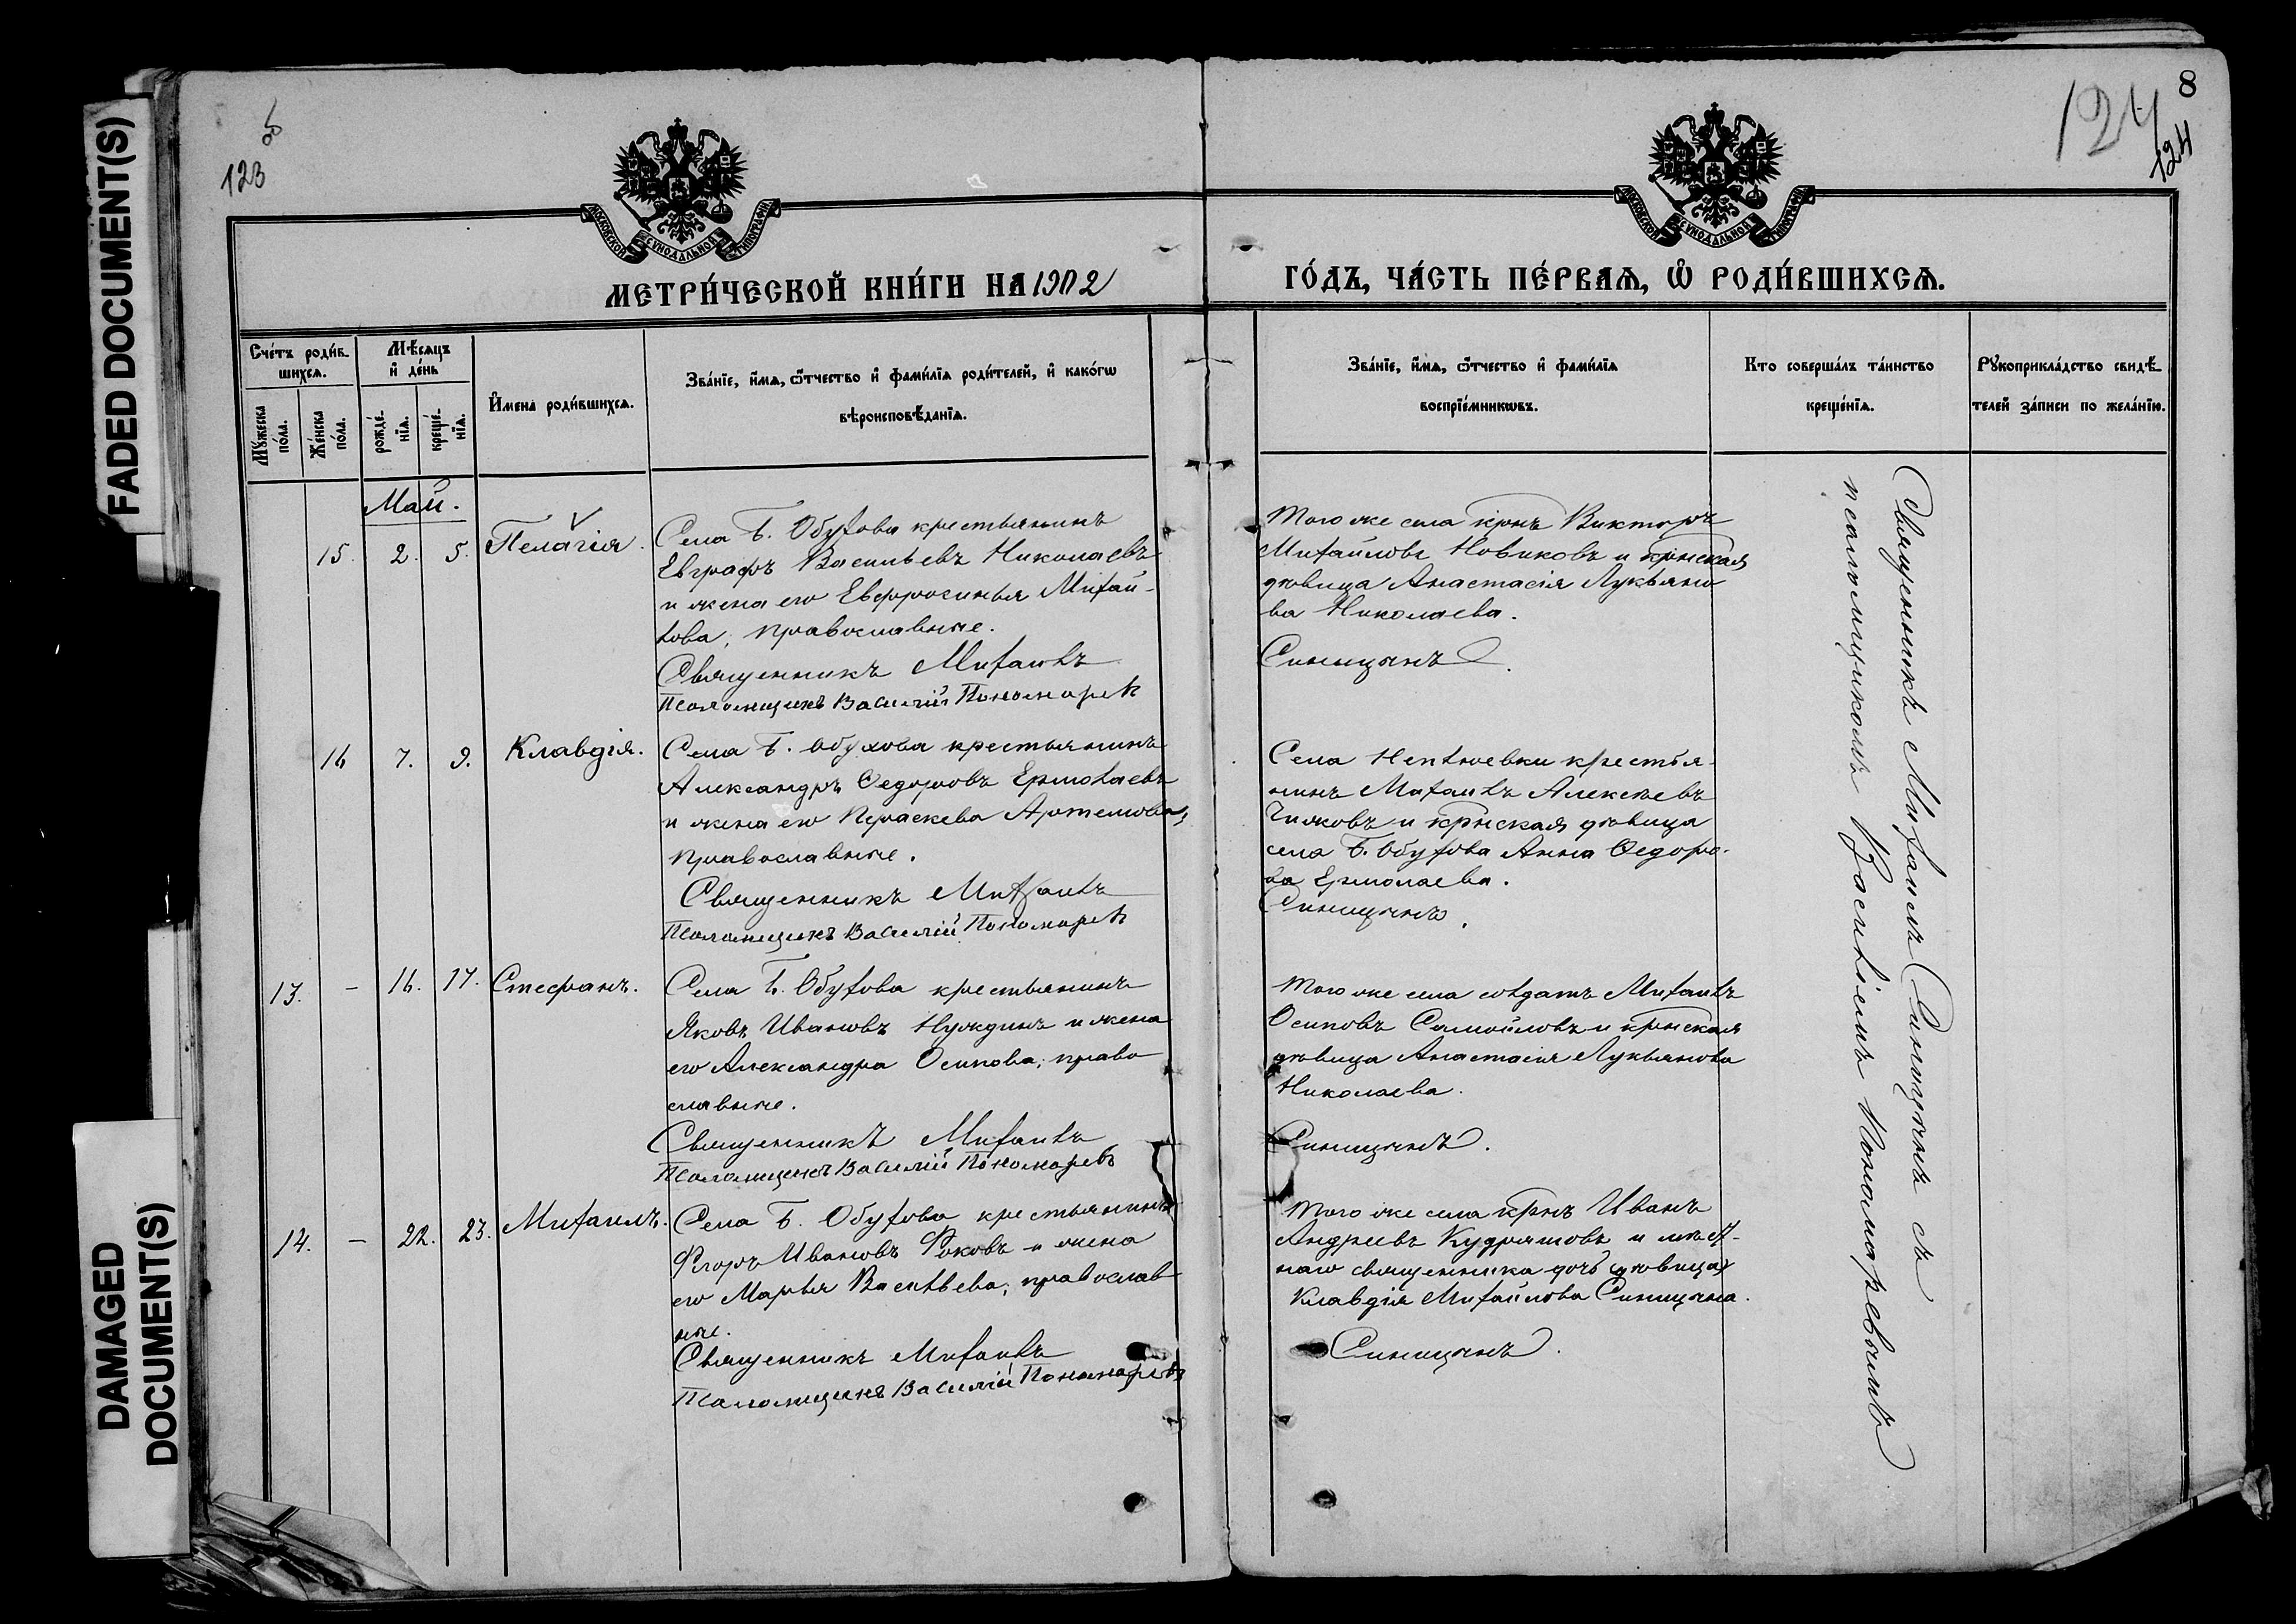 FADED DOCUMENT(S)
DAMAGED
DOCUMENT(S)
123
8
124
124
МОСКОВСКОЙ СѴНОДАЛЬНОЙ ТИПОГРАФІИ
МОСКОВСКОЙ СѴНОДАЛЬНОЙ ТИПОГРАФІИ
МЕТРИ́ЧЕСКОЙ КНИ́ГИ НА 1902
ГО́ДЪ, ЧА́СТЬ ПЕ́РВАѦ, Ѡ РОДИ́ВШИХСѦ.
Сче́тъ роди́в-
шихсѧ.
Мꙋ́жеска
по́ла.
Же́нска
по́ла.
Мѣ́сѧцъ
и҆ де́нь
рожде́-
нїѧ.
креще́-
нїѧ.
И҆мена̀ роди́вшихсѧ.
Зва́нїе, и҆́мѧ, ѻ҆́тчество и҆ фами́лїѧ роди́телей, и҆ како́гѡ
вѣроисповѣ́данїѧ.
Зва́нїе, и҆́мѧ, ѻ҆́тчество и҆ фами́лїѧ
воспрїе́мникѡвъ.
Кто соверша́лъ та́инство
креще́нїѧ.
Рꙋкоприкла́дство свидѣ́-
телей за́писи по жела́нїю.
Май.
15. 2. 5. Пелагія.
Села Б. Обухова крестьянинъ
Евграфъ Васильевъ Николаевъ
и жена его Евфросинья Михай-
лова; православные.
Священникъ Михаилъ
Псаломщикъ Василій Пономарев
Того же села крнъ Викторъ
Михайловъ Новиковъ и крнская
дѣвица Анастасія Лукьяно
ва Николаева.
Синицынъ
16 7. 9. Клавдія.
Села Б. Обухова крестьянинъ
Александръ Ѳедоровъ Ермолаевъ
и жена его Параскева Артемова,
православные.
Священникъ Михаилъ
Псаломщикъ Василій Пономарев
Села Нептюевки крестья-
нинъ Михаилъ Алексѣевъ
и крнская дѣвица
села Б. Обухова Анна Ѳедоро-
ва Ермолаева.
Синицынъ.
13. – 16. 17. Стефанъ.
Села Б. Обухова крестьянинъ
Яковъ Ивановъ Нуждинъ и жена
его Александра Осипова; право
славные.
Священникъ Михаилъ
Псаломщикъ Василій Пономаревъ
Того же села солдатъ Михаилъ
Осиповъ Самойловъ и крнская
дѣвица Анастасія Лукьянова
Николаева.
Синицынъ.
14. – 22. 23. Михаилъ.
Села Б. Обухова крестьянинъ
Ѳедоръ Ивановъ Фоковъ и жена
его Марья Васильева; православ
ные.
Священникъ Михаилъ
Псаломщикъ Василій Пономаревъ
Того же села крнъ Иванъ
Андреевъ Кудряшовъ и мѣст-
наго священника дочь дѣвица
Клавдія Михайлова Синицына.
Синицынъ.
Священникъ Михаилъ Синицынъ съ
псаломщикомъ Василіемъ Пономаревымъ